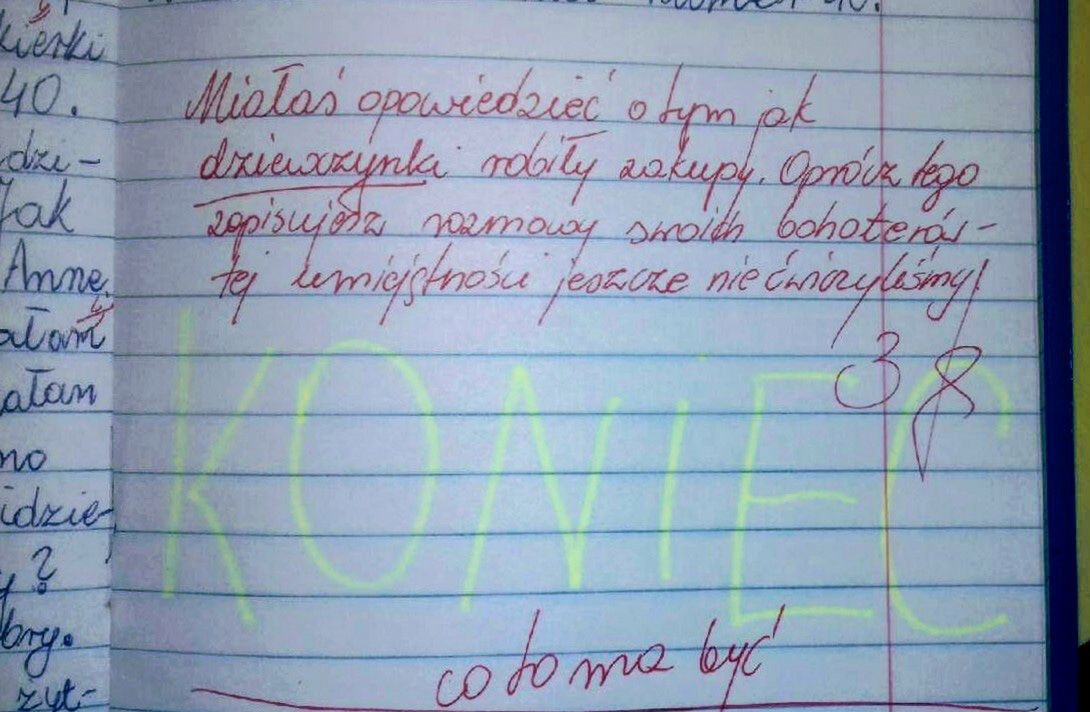 kierki
40.
dzi-
Jak
Annę
ałam
ałam
no
idzie-
?
bry.
zyt-
40.
Miałaś opowiedzieć o tym jak
dziewczynki robiły zakupy. Oprócz tego
zapisujesz rozmowy swoich bohaterów-
tej umiejętności jeszcze nie ćwiczyliśmy!
3
KONIEC
co to ma być